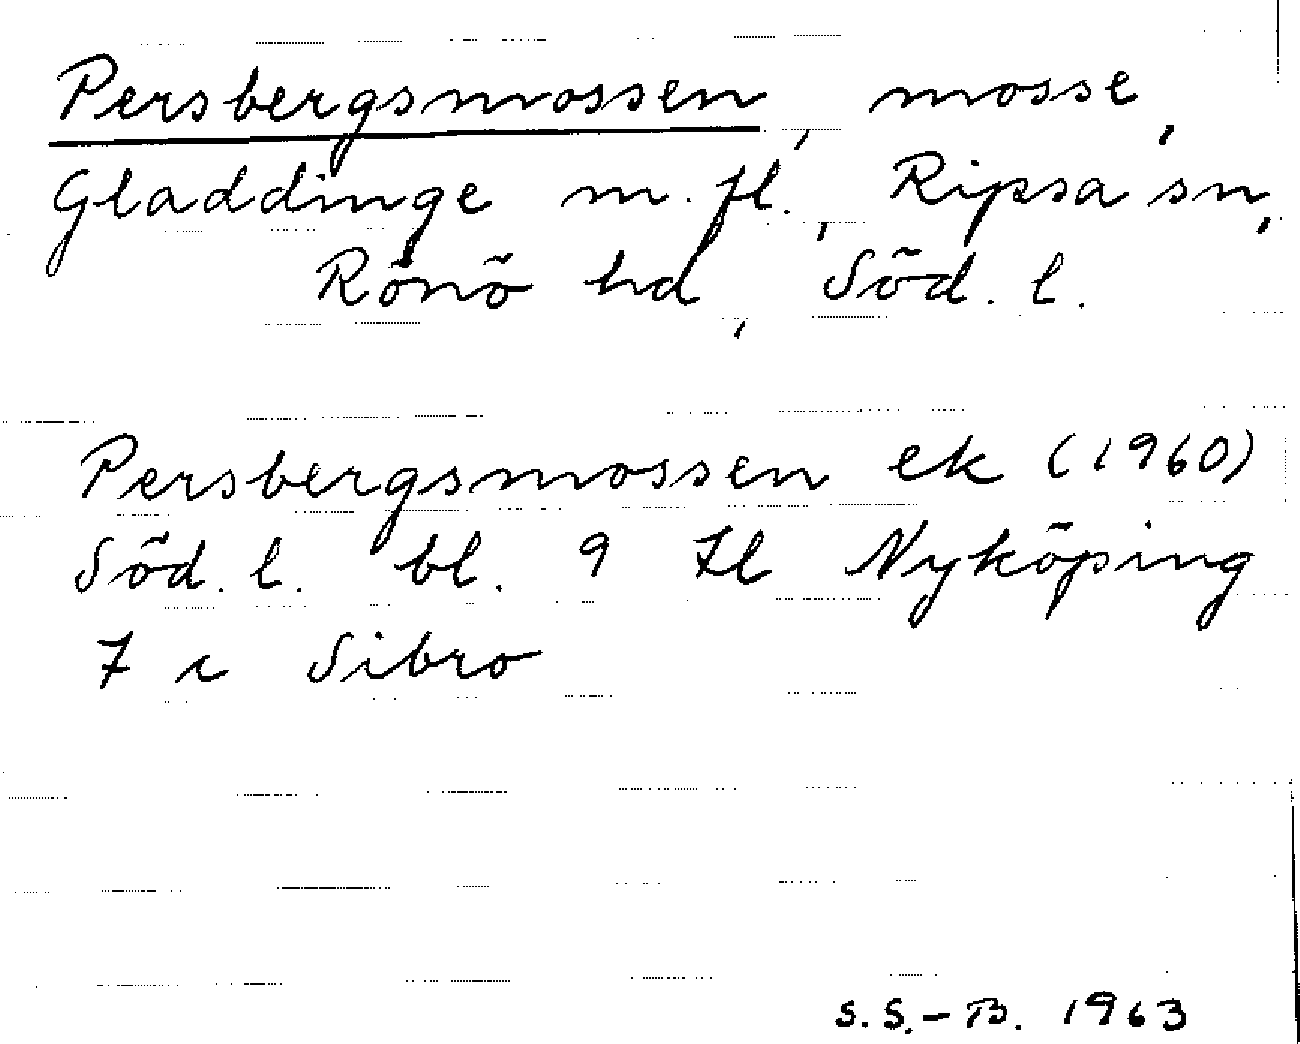 Persbergsmossen, mosse,
Gladdinge m. fl., Ripsa sn,
Rönö hd, Söd. l.
Persbergsmossen ek (1960)
Söd. l. bl. 9 Il Nyköping
7 c Sibro
S. S. - B. 1963